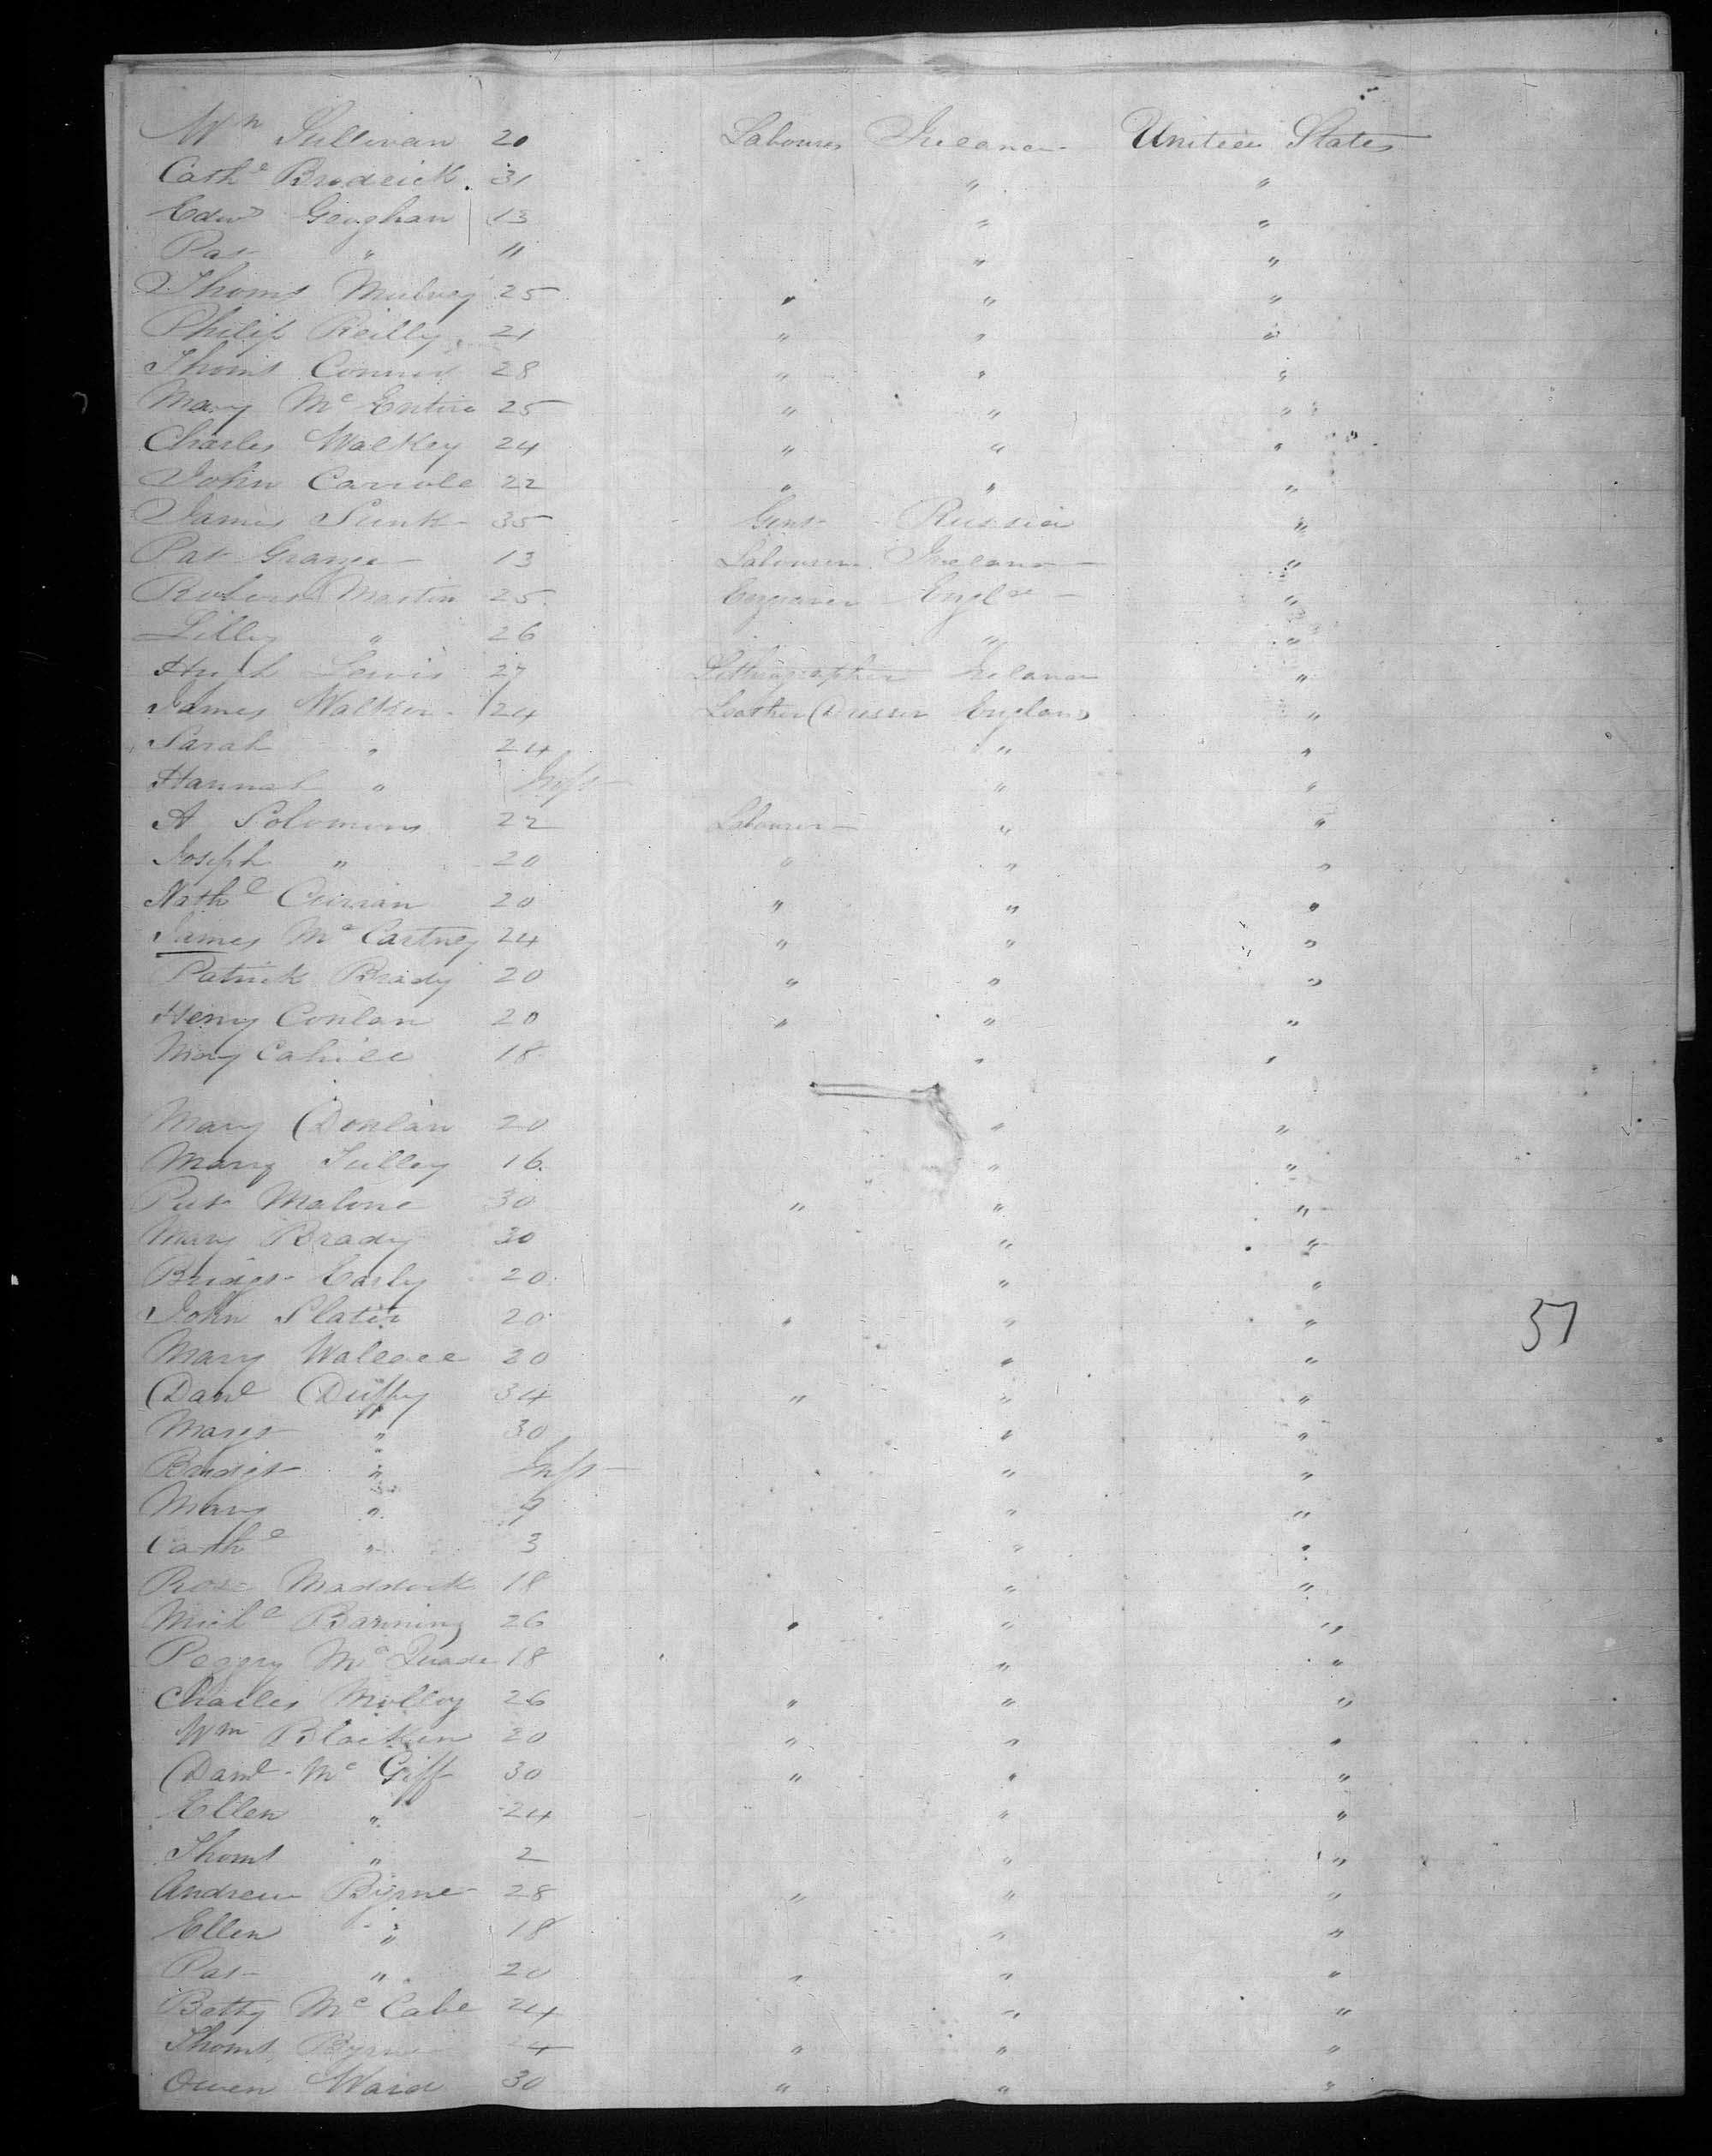 Wm Sullivan 20 Labourer Ireland United States
Cathe Brodrick 31 " "
Edwd Geoghan 13 " "
Pat " 11 " "
Thoms Mulvey 25 " " "
Philip Reilly 21 " " "
Thoms Connor 28 " " "
Mary Mc Entire 25 " " "
Charles Walkey 24 " " "
John Carrole 22 " " "
James 35 Gent Russia "
Pat Grange 13 Labourer Ireland "
Robert Martin 25 Engineer Engld "
Lilley " 26 " "
Hugh Lewis 27 Lithographer Ireland "
James Walker 24 Leather Dresser England "
Sarah " 24 " "
Hannah " Inft " "
A Solomons 22 Labourer " "
Joseph " 20 " " "
Nathl Curran 20 " " "
James Mc Cartney 24 " " "
Patrick Brady 20 " " "
Henry Conlan 20 " " "
Mary Cahill 18 " "
Mary Donlan 20 " "
Mary Tulley 16 " "
Pat Malone 30 " " "
Mary Brady 30 " "
Bridgt Early 20 " "
John Slater 20 " " "
Mary Wallace 20 " "
Danl Duffy 34 " " "
Margt " 30 " "
Bridgt " Inft " "
Mary " 9 " "
Cathe " 3 " "
Rose Maddock 18 " "
Michl Banning 26 " " "
Peggy Mc Quade 18 " "
Charles Molloy 26 " " "
Wm Blacken 20 " " "
Danl Mc Giff 30 " " "
Ellen " 24 " "
Thoms " 2 " "
Andrew Byrne 28 " " "
Ellen " 18 " "
Pat " 20 " " "
Betty Mc Cabe 24 " "
Thoms Byrne 24 " " "
Owen Ward 30 " " "
57